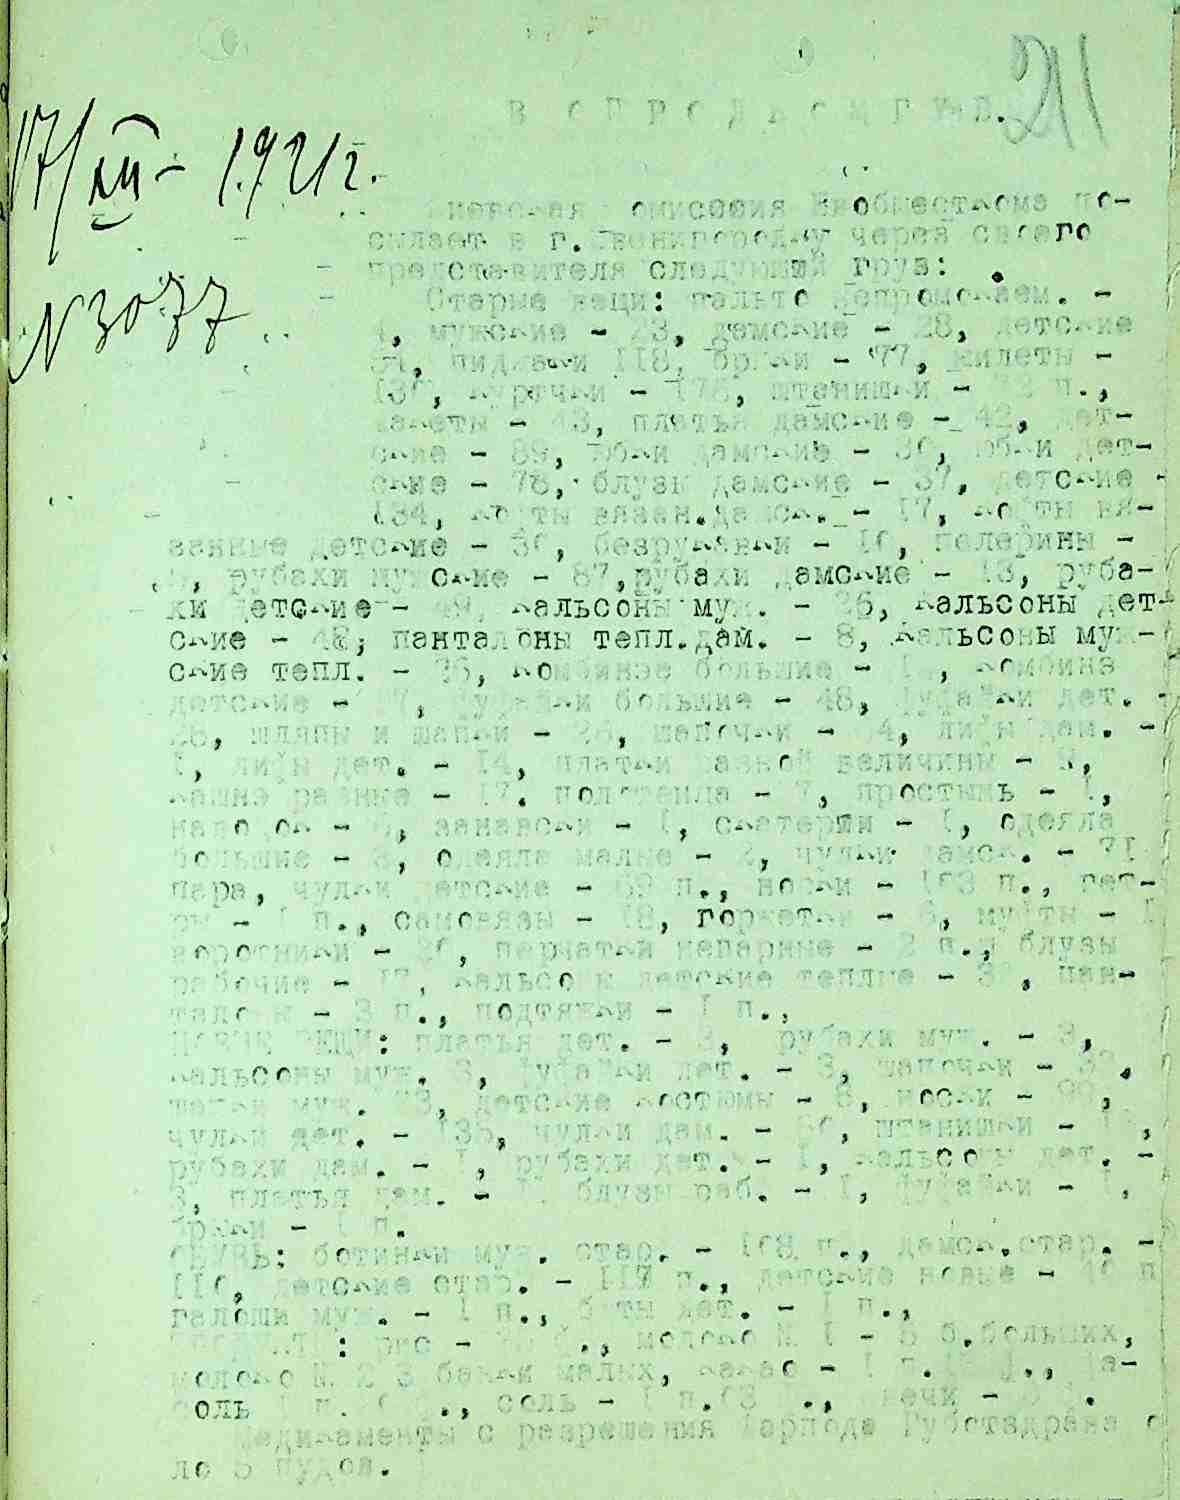 В ОПРОДКОМГУБ.
211
17/XII - 1921 г.
N 3077
Киевская Комиссия Евобщесткома по-
сылает в г. Звенигородку через своего
представителя следующий груз:
Старые вещи: пальто непромокаем. -
4, мужские - 23, дамские - 28, детские
34, пиджаки 118, брюки - 77, жилеты -
курточки - 178, штанишки - п.,
жакеты - 43, платья дамские - 42, дет-
ские - 89, юбки дамские - 30, юбки дет-
ские - 78, блузы дамские - 37, детские -
134, кофты вязан.дамск. - 17, кофты вя-
занные детские - 30, безрукавки - 10, пелерины -
рубахи мужские - 87, рубахи дамские - 13, руба-
хи детские - 49, кальсоны муж. - 26, кальсоны дет-
ские - 48; панталоны тепл.дам. - 8, кальсоны муж-
ские тепл. - 26, комбинэ большие - комбинэ
детские - фуфайки большие - 48, фуфайки дет. -
28, шляпы и шапки - 28, шапочки - лифы дам. -
1, лифы дет. - 14, платки разной величины -
кашнэ разные - 17. полотенца - 7, простынь - 1,
наволок - занавески - 1, скатерти - 1, одеяла
большие - одеяла малые - 2, чулки дамск. - 71
пара, чулки детские - 69 п., носки - 163 п., гет-
ры - 1 п., самовязы - 18, горжетки - 6, муфты - 1
воротники - 20, перчатки непарные - 2 п., блузы
рабочие - 17, кальсоны детские теплые - пан-
талоны - 3 п., подтяжки - 1 п.,
НОВЫЕ ВЕЩИ: платья дет. - 3, рубахи муж. - 3,
кальсоны муж. 3, фуфайки дет. - 3, шапочки -
шапки муж. детские костюмы - 8, носки -
чулки дет. - 135, чулки дам. - штанишки -
рубахи дам. - 1, рубахи дет. - 1, кальсоны дет. -
3, платья дам. - блузы раб. - 1, фуфайки - 1,
брюки - 1 п.
ОБУВЬ: ботинки муж. стар. - 168 п., дамск.стар. -
110, детские стар. - 117 п., детские новые - 40 п
галоши муж. - 1 п., боты дет. - 1 п.,
ПРОДУКТЫ: рис - молоко № 1 - 5 б.больших,
молоко № 2 3 банки малых, какао - 1 п. фа-
соль п. соль - п. свечи -
Медикаменты с разрешения Губотздрава о
ло 5 пудов.